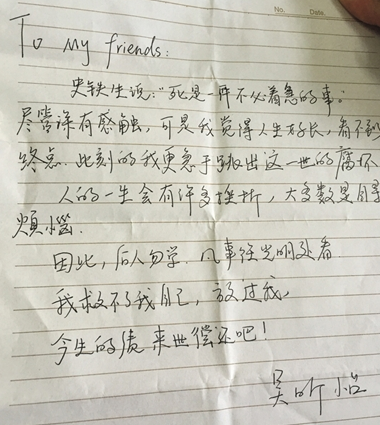 No.
Date.
To My friends:
史铁生说:"死是一件不必着急的事。
尽管深有感触,可是我觉得人生好长,看不到
终点.此刻的我更急于跳出这一世的腐坏
人的一生会有许多挫折,大多数是自寻
烦恼.
因此,后人勿学.凡事往光明处看.
我救不了我自己,放过我,
今生的债来世偿还吧!
吴昕怡